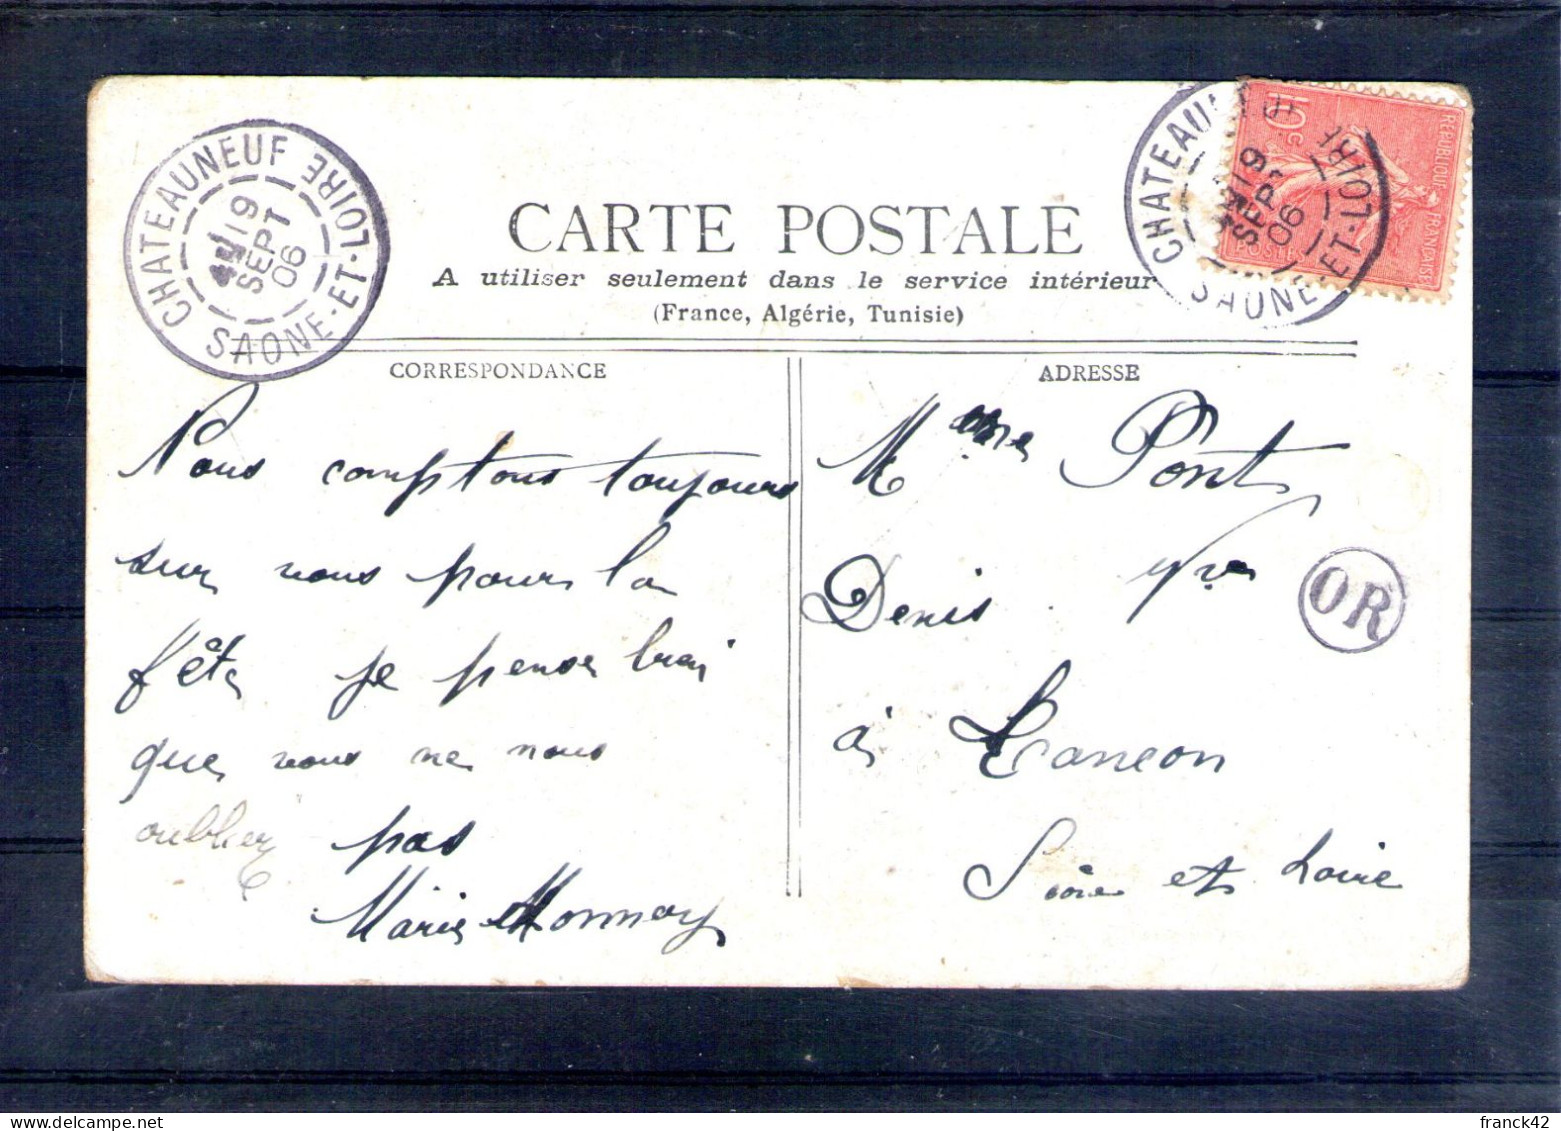 CHATEAUNEUF
SAONE-ET-LOIRE
19
SEPT
06
CHATEAUNEUF
SAONE-ET-LOIRE
19
SEPT
06
10c
REPUBLIQUE FRANÇAISE
POSTES
CARTE POSTALE
A utiliser seulement dans le service intérieur
(France, Algérie, Tunisie)
CORRESPONDANCE
Nous comptons toujours
sur vous pour la
fête je pense
que vous ne nous
oublier pas
Marie Monnay
ADRESSE
Mme Pont
Denis
OR
à
Saône et Loire
franck42